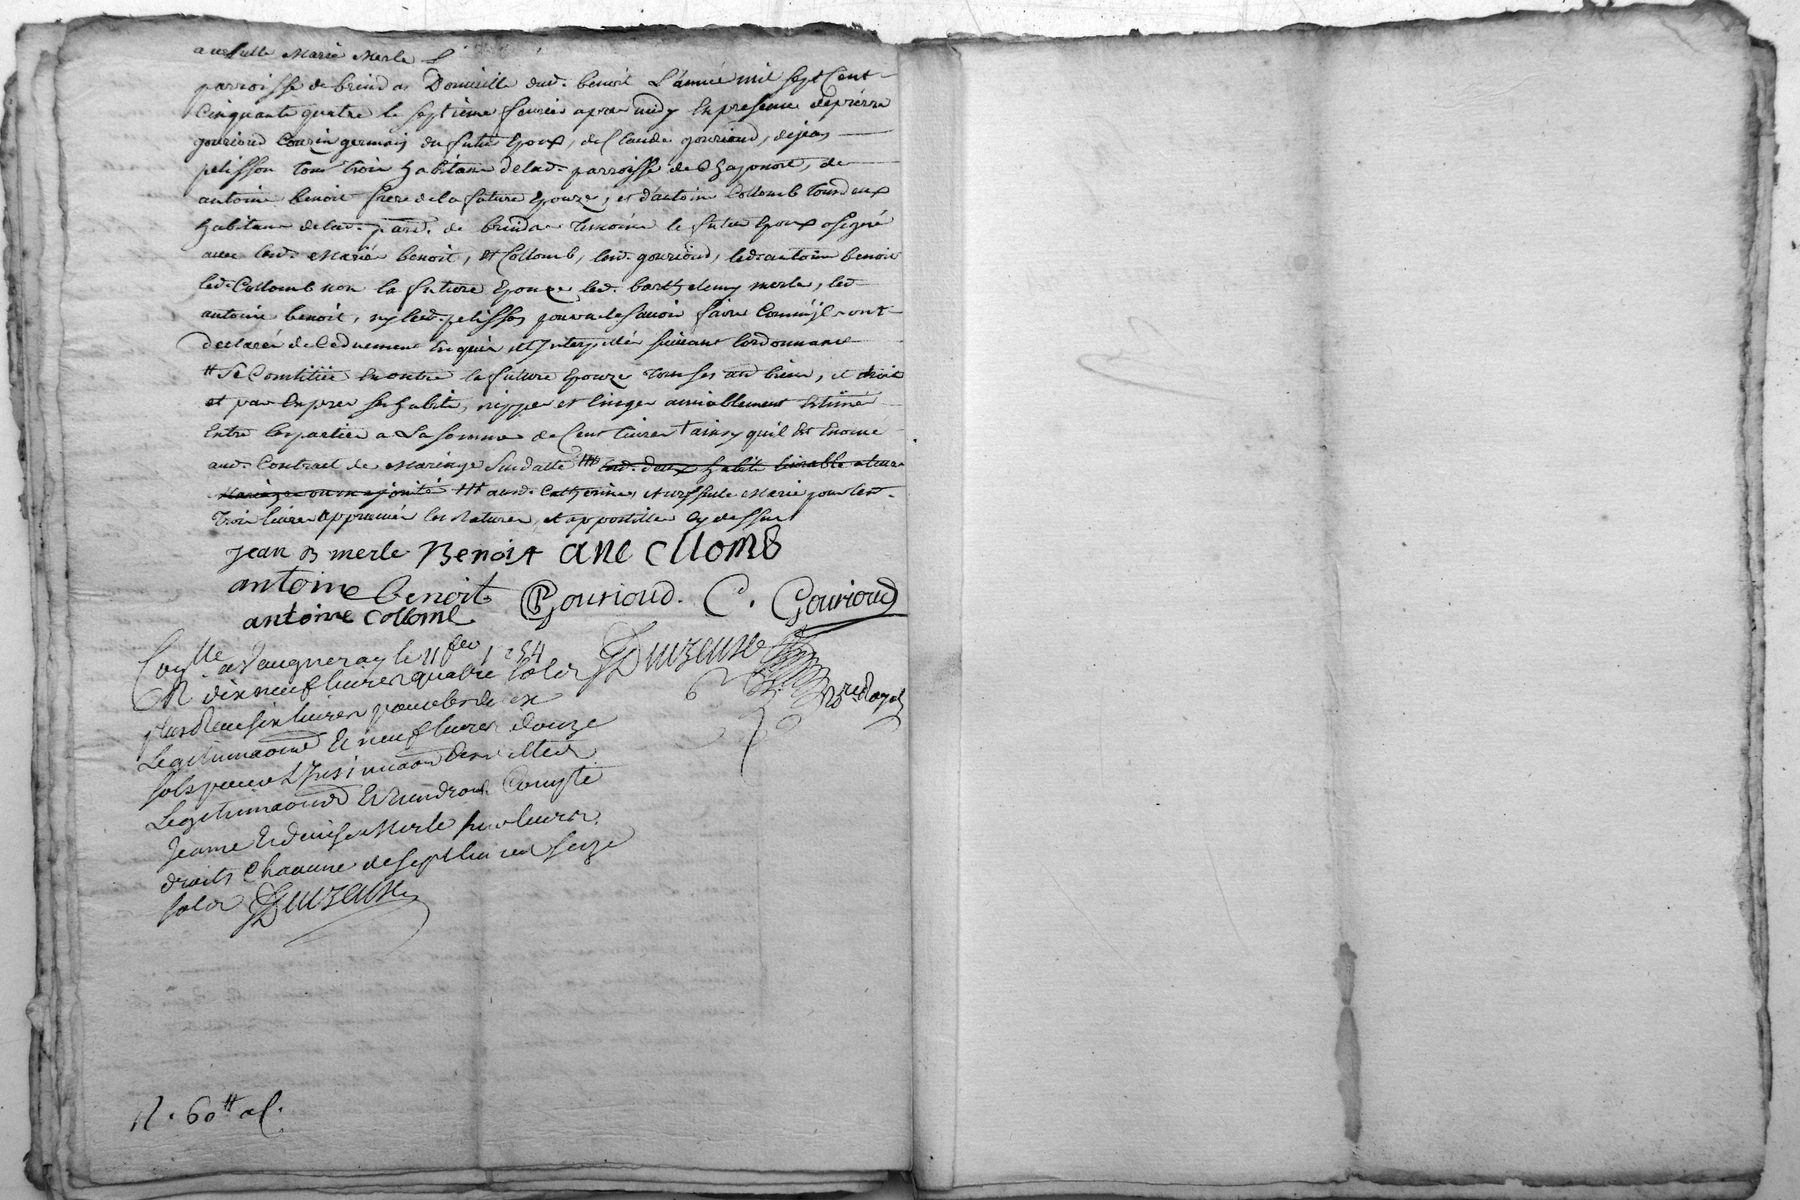 Marie Merle
parroisse de brindas Domicille dud. benoit L'année mil sept Cent
Cinquante quatre le septieme feurier apres midy En presence de pierre
gourioud Couzin germain du futur Epoux, de Claude gourioud, de jean
pelisson tous trois habitans de lad. parroisse de Chaponost, de
antoine benoit frere de la future Epouze, et d'antoine Collomb tous deux
habitans de lad. parr. de brindas temoins le futur Epoux a signé
auec lesd. Mariés benoit, et Collomb, lesd. gourioud, led. antoine benoit
led. Collomb non la future Epouze led. barthelemy merle, led.
antoine benoit, ny led. pelisson pour ne le sauoir faire Comm'jls ont
declarés de Ce duement Enquis et Interpellés suiuant lordonnance
# Se Constitüe En outre la future Epouze tous ses aud biens, et droits
et par Exprès ses habits, nippes et linges amiablement Estimés
Entre les parties a La somme de Cent liures + ainsy quil Est Enoncé
aud. Contract de Mariage Susdatté ### lesd. deux habits liurable a leur
Mariage ou majorité ### ausd. Catherine, et urssulle Marie pour lesd.
trois liures approuués les ratures, et appostilles Cy dessus
jean B merle Benoit ANE CLLOMB
antoine benoit PGourioud. C. Gourioud
antoine collomb
Con.lle a Vaugneray le 11 feu. 1754 Duzeuse
R. dix neuf liures quatre sols
plus Receu six liures pour les
Legitimaōns Et neuf liures douze
sols pour L'Insinuaōn
Legitimaōns Et Rendront Compte
Jeanne Et denise Merle pour leurs
droits Chacune de sept liures seize
sols Duzeuse
R. 60# al.